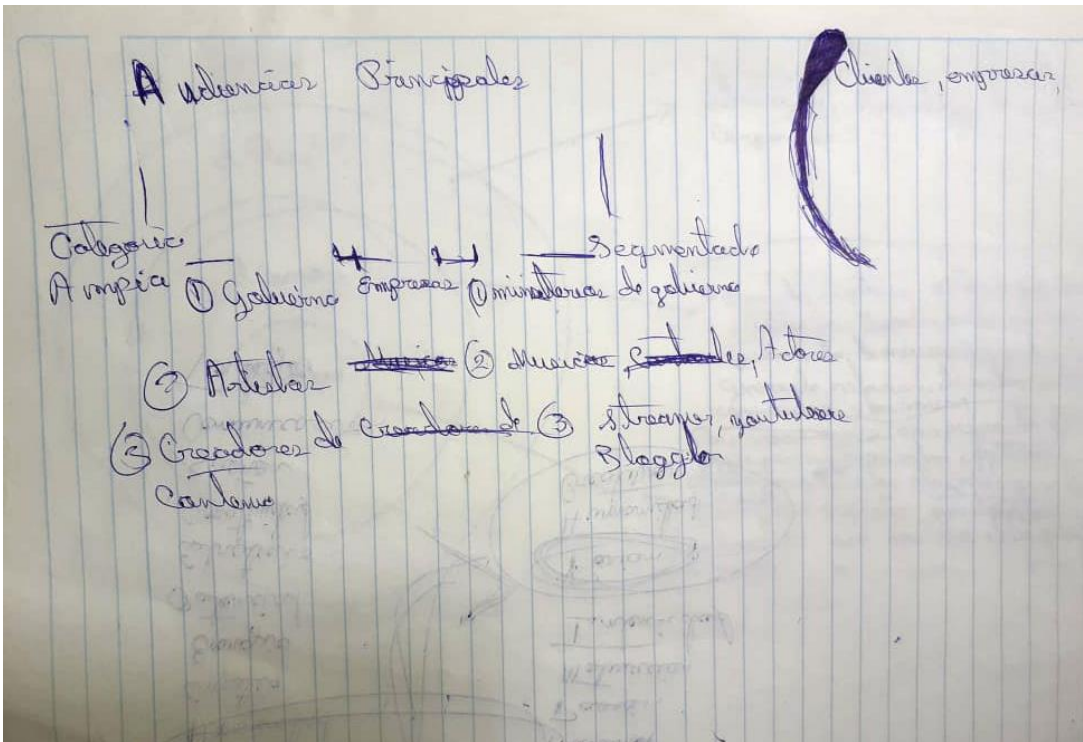 Audiencias Principales
Clientes, empresas,
Categoria
Ampia
① Gobierno
Empresas
Segmentado
① ministerios de gobierno
② Artistas
② Musicos, Actores
③ Creadores de
Contenio
③ Streamer, youtubere
Blogger